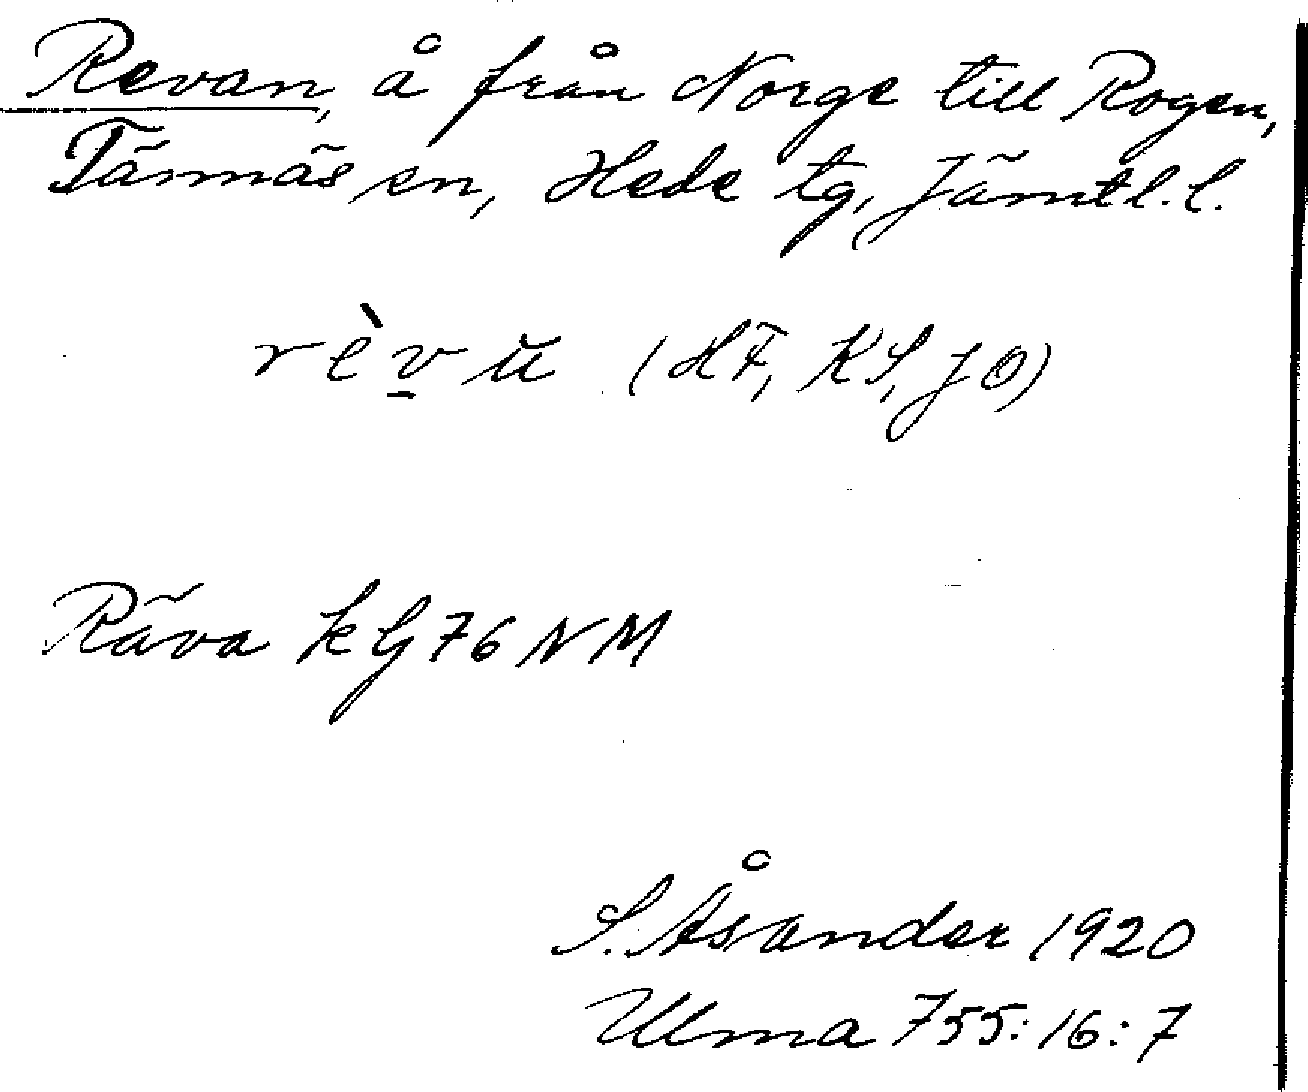 Revan, å från Norge till Rogen,
Tännäs sn, Hede tg, Jämtl. l.
rèv̲ŭ (HF, KS, JO)
Räva kG 76 NM
S. Åsander 1920
Ulma 755:16:7